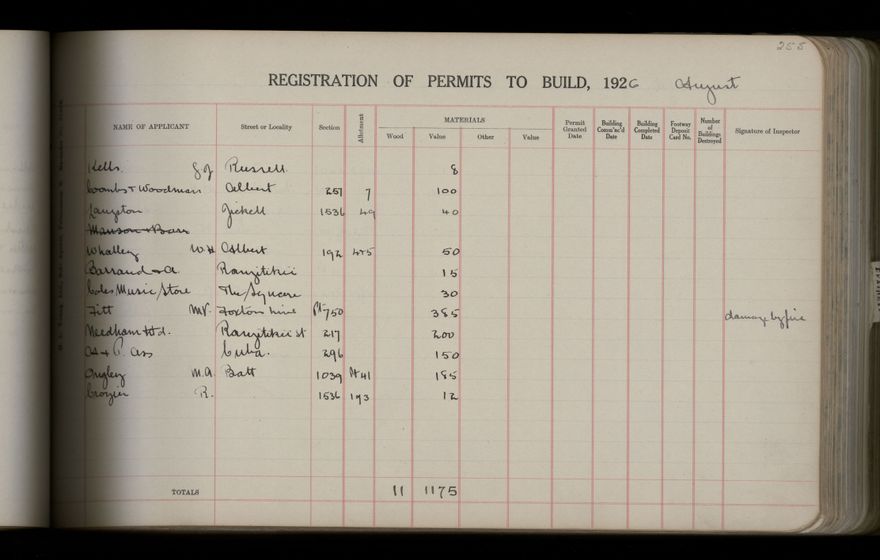 255
REGISTRATION OF PERMITS TO BUILD, 1926 August
NAME OF APPLICANT Street or Locality Section Allotment MATERIALS Wood Value Other Value Permit Granted Date Building Comm'nc'd Date Building Completed Date Footway Deposit Card No. Number of Buildings Destroyed Signature of Inspector
Kells. Russell 8
Coombs & Woodman Albert 257 7 100
Langton Jickell 1536 49 40
Manson & Barr
Whalley W.H Albert 192 4&5 50
Barraud & A. Rangitikei 15
Coles Music Store The Square 30
Fitt Foxton Line Pt 750 385 damage by fire
Needham Ltd. Rangitikei st 217 200
A & P. Ass Cuba. 296 150
Ongley M.A. Batt 1039 Pt 41 185
Crozier R. 1536 193 12
TOTALS 11 1175